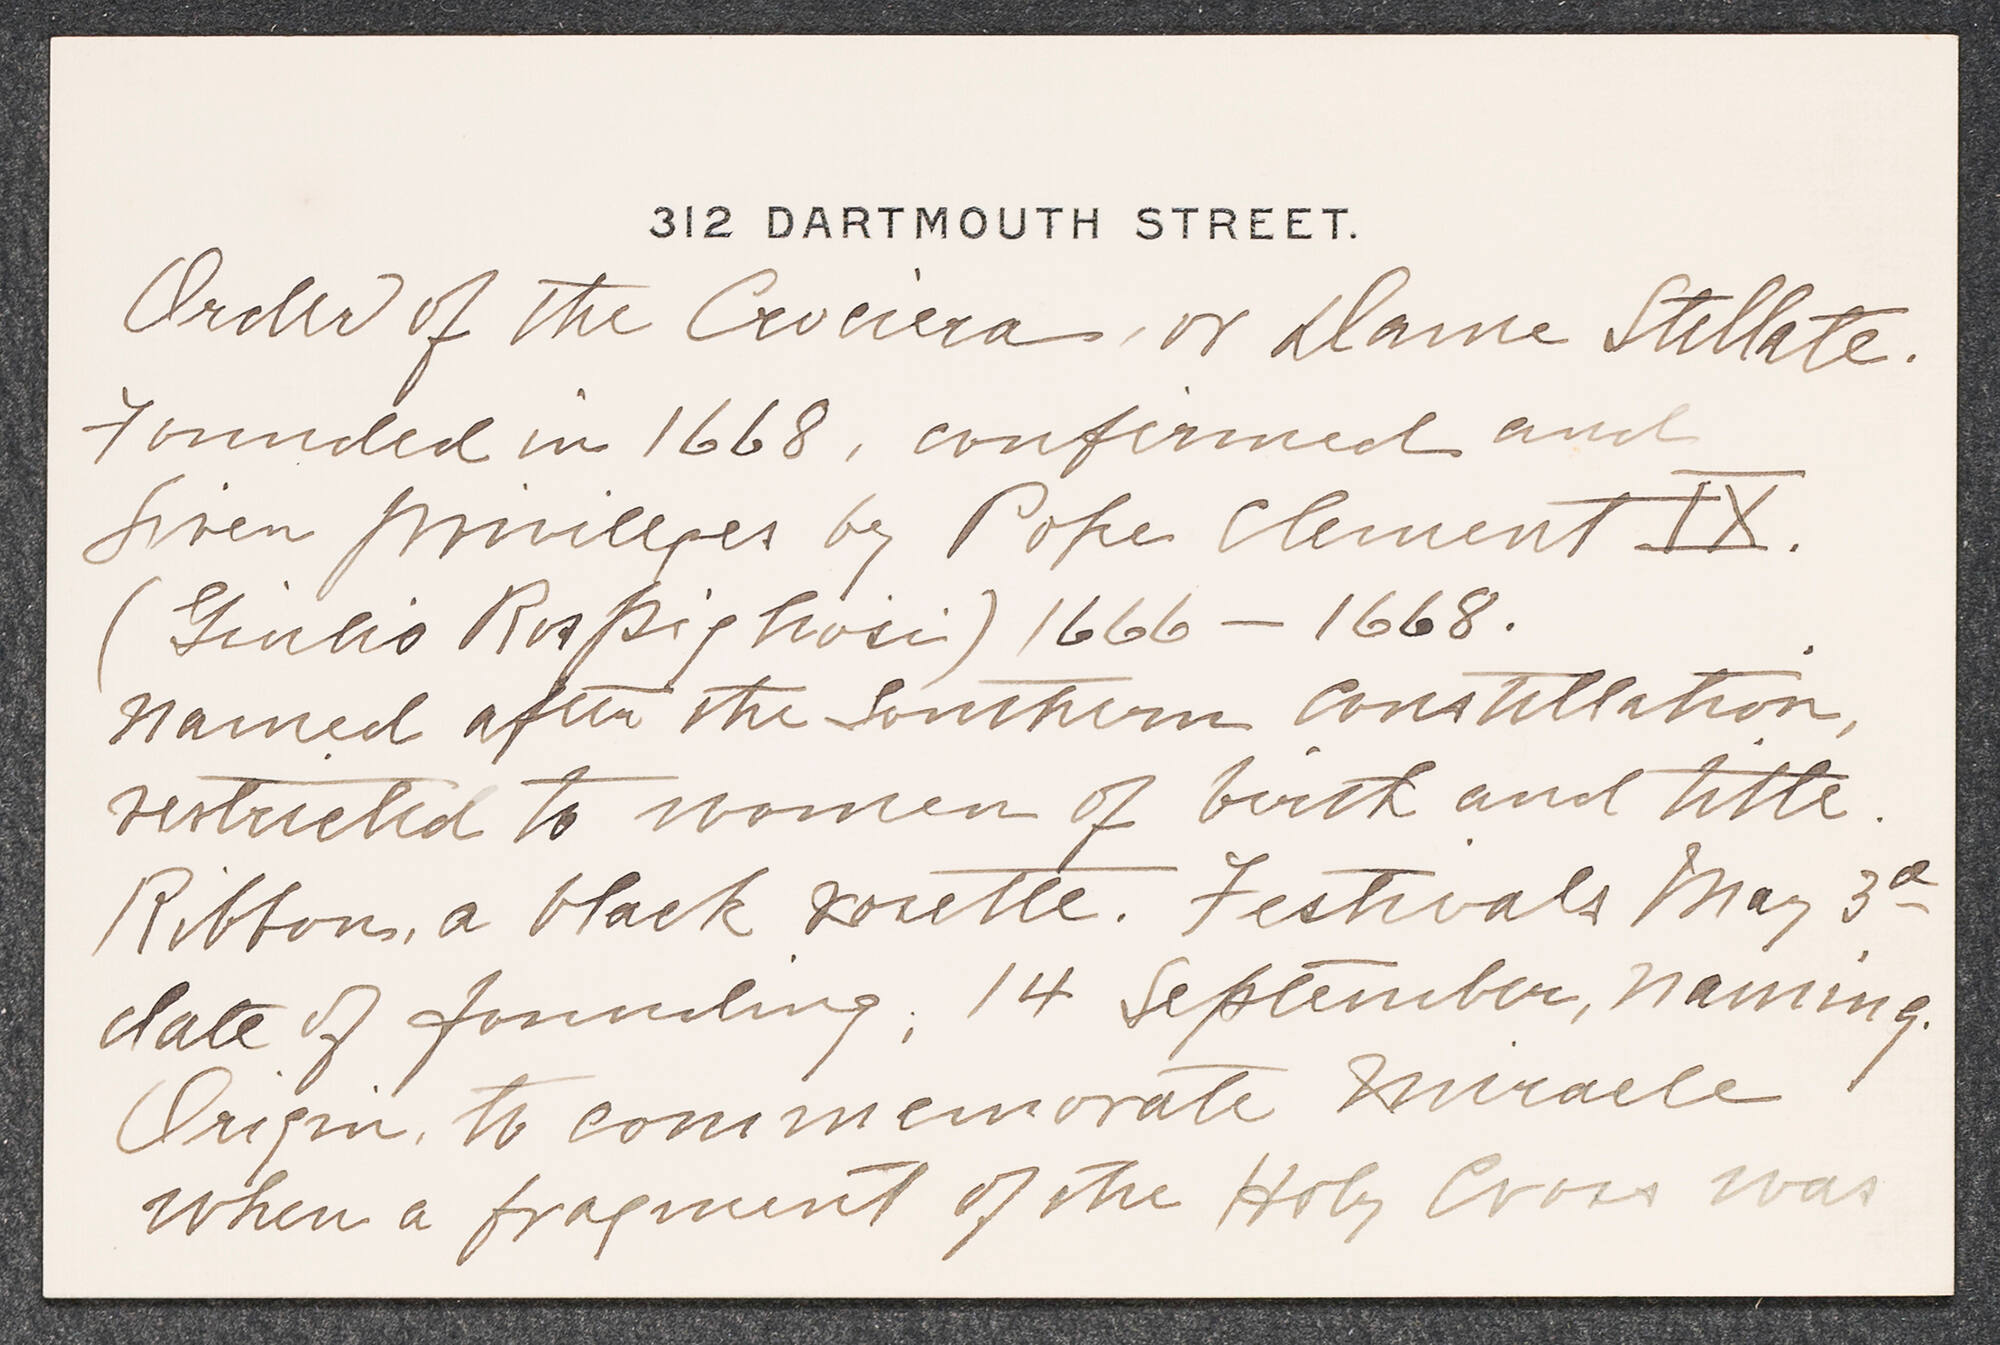 312 DARTMOUTH STREET.
Order of the Crociera, or Dame Stellate.
Founded in 1668, confirmed and
given privileges by Pope Clement IX.
(Giulio Rospigliosi) 1666 – 1668.
Named after the Southern Constellation,
restricted to women of birth and title.
Ribbon, a black rosette. Festivals May 3d
date of founding; 14 September, naming.
Origin, to commemorate miracle
when a fragment of the Holy Cross was